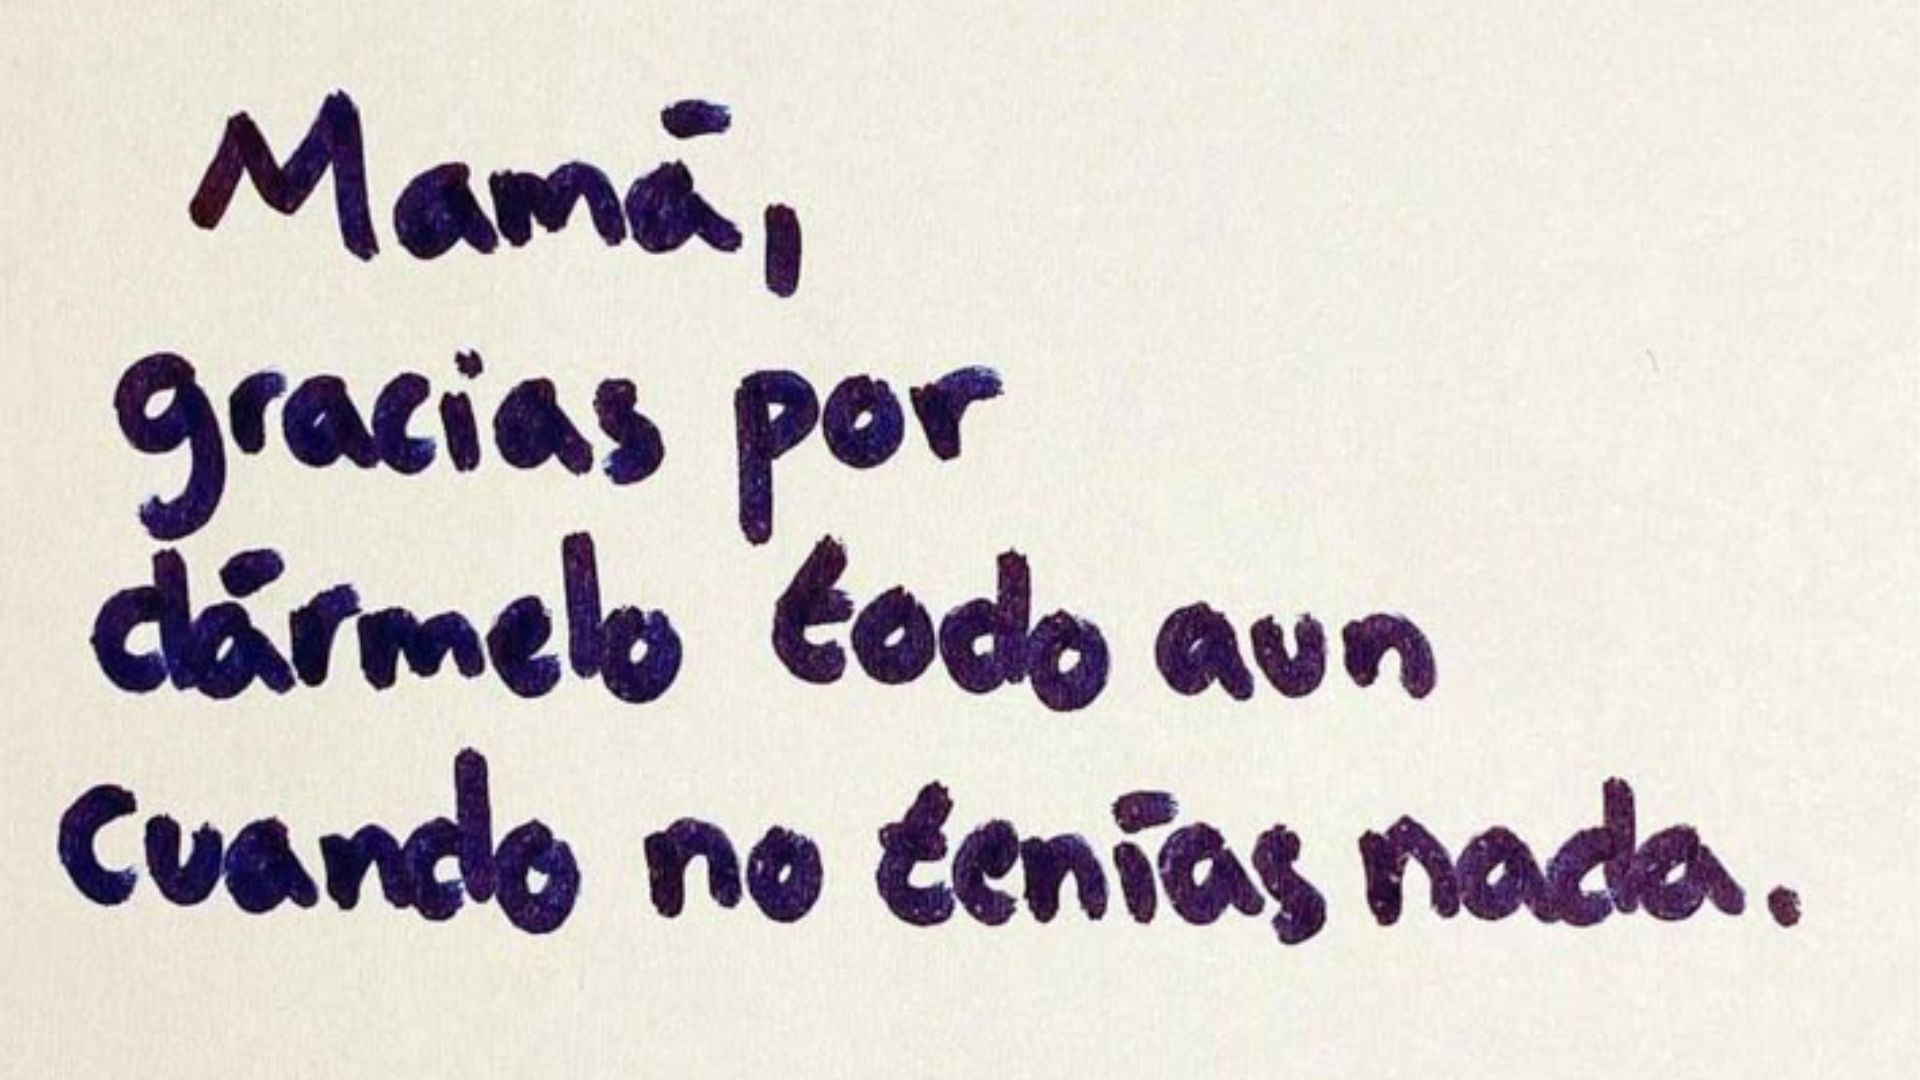 Mamá,
gracias por
dármelo todo aun
cuando no tenías nada.